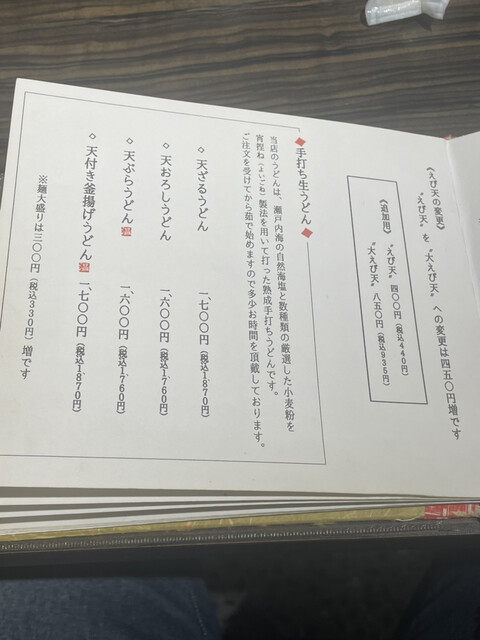 《えび天の変更》
〝えび天〟を〝大えび天〟への変更は四五〇円増です
《追加用》
〝えび天〟四〇〇円（税込440円）
〝大えび天〟八五〇円（税込935円）
◆手打ち生うどん◆
当店のうどんは、瀬戸内海の自然海塩と数種類の厳選した小麦粉を
宵捏ね（よいごね）製法を用いて打った熟成手打ちうどんです。
ご注文を受けてから茹で始めますので多少お時間を頂戴しております。
◇ 天ざるうどん 一、七〇〇円（税込1,870円）
◇ 天おろしうどん 一、六〇〇円（税込1,760円）
◇ 天ぷらうどん 温 一、六〇〇円（税込1,760円）
◇ 天付き釜揚げうどん 温 一、七〇〇円（税込1,870円）
※麺大盛りは三〇〇円（税込330円）増です